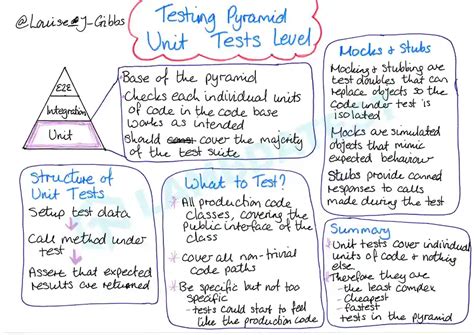 @Louise_J_Gibbs
Testing Pyramid
Unit Tests Level
E2E
Integration
Unit
- Base of the pyramid
- Checks each individual units
of code in the code base
works as intended
- Should const cover the majority
of the test suite
Mocks & Stubs
Mocking & stubbing are
test doubles that can
replace objects so the
code under test is
isolated
Mocks are simulated
objects that mimic
expected behaviour
Stubs provide canned
responses to calls
made during the test
Structure of
Unit Tests
Setup test data
Call method under
test
Assert that expected
results are returned
What to Test?
* All production code
classes, covering the
Public interface of the
class
* cover all non-trivial
code paths
* Be specific but not too
specific
- tests could start to feel
like the production code
Summary
* Unit tests cover individual
units of code & nothing
else
* Therefore they are
- the least complex
- cheapest
- fastest
tests in the pyramid